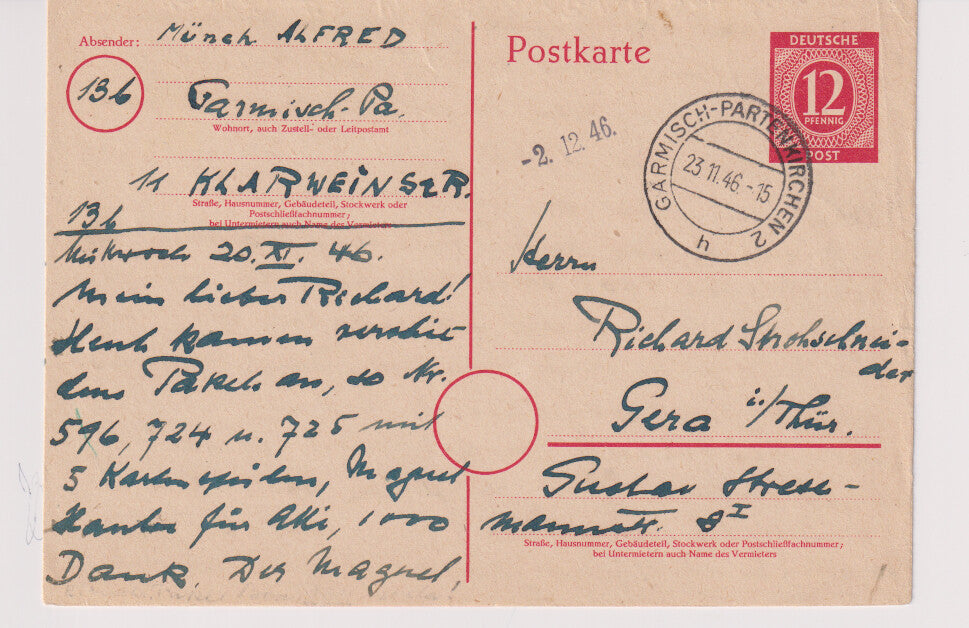 Absender: Münch ALFRED
13b
Garmisch-Pa.
Wohnort, auch Zustell- oder Leitpostamt
11 KLARWEINSTR.
Straße, Hausnummer, Gebäudeteil, Stockwerk oder
Postschließfachnummer;
bei Untermietern auch Name des Vermieters
13b
Mittwoch 20. XI. 46.
Mein lieber Richard!
Heute kamen verschie
dene Pakete an, so Nr.
596, 724 u. 725 mit
5 Kartenspielen, Magnet
für Aki, 1000
Dank. Der Magnet,
Postkarte
DEUTSCHE
12
PFENNIG
POST
-2. 12. 46.
GARMISCH-PARTENKIRCHEN 2
23.11.46.-15
h
Herrn
Richard Strohschnei-
der
Gera i./Thür.
Gustav Strese-
mannstr. 8 I
Straße, Hausnummer, Gebäudeteil, Stockwerk oder Postschließfachnummer;
bei Untermietern auch Name des Vermieters